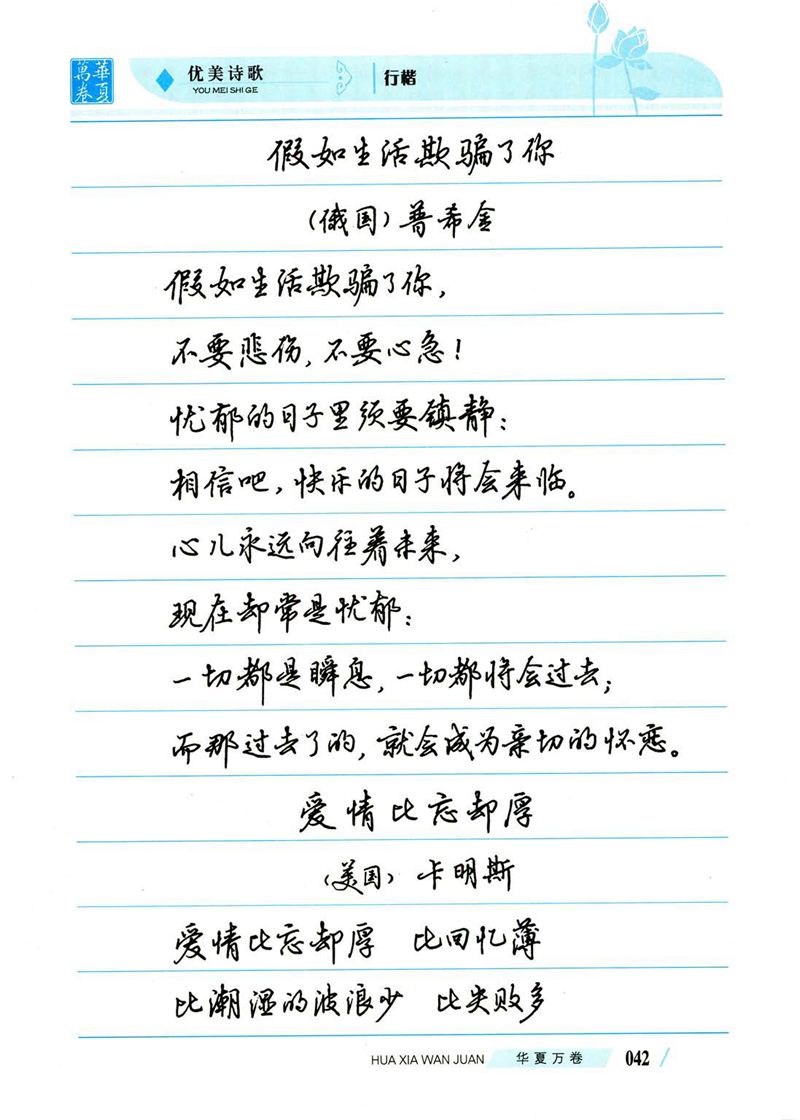 華夏萬卷
优美诗歌
YOU MEI SHI GE
行楷
假如生活欺骗了你
（俄国）普希金
假如生活欺骗了你，
不要悲伤，不要心急！
忧郁的日子里须要镇静：
相信吧，快乐的日子将会来临。
心儿永远向往着未来，
现在却常是忧郁：
一切都是瞬息，一切都将会过去；
而那过去了的，就会成为亲切的怀恋。
爱情比忘却厚
（美国） 卡明斯
爱情比忘却厚 比回忆薄
比潮湿的波浪少 比失败多
HUA XIA WAN JUAN 华夏万卷 042